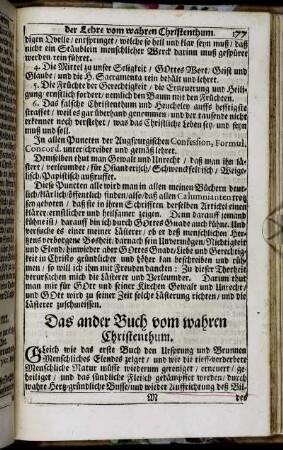 der Lehre vom wahren Christenthum. 177
digen Quelle / entspringet / welche so hell und klar seyn muß / daß
nicht ein Stäublein menschlicher Werck darinn muß gespüret
werden. rein führet.
4. Die Mittel zu unser Seligkeit / GOttes Wort / Geist und
Glaube / und die H. Sacramenta rein behält und lehret.
5. Die Früchte der Gerechtigkeit / die Erneuerung und Heili-
gung / ernstlich fordert / nemlich den Baum mit den Früchten.
6. Das falsche Christenthum und Heucheley auffs hefftigste
straffet / weil es gar überhand genommen / und der tausende nicht
erkennet noch verstehet / was das Christliche Leben sey / und seyn
muß und soll.
In allen Puncten der Augspurgischen Confession, Formul.
Concord. unterschrieben und gemäß lehret.
Demselben thut man Gewalt und Unrecht / daß man ihn lä-
stert / verleumdet / für Osiandrisch / Schwenckfeltisch / Weige-
lisch / Papistisch außruffet.
Diese Puncten alle wird man in allen meinen Büchern deut-
lich / klärlich / öffentlich finden / also / daß allen Calumnianten trotz
sey geboten / daß sie in ihren Schrifften derselben Artickel einen
klärer / ernstlicher und heilsamer zeigen. Denn darauff jemand
führe ist / darauff bin ich durch Gottes Gnade auch führe. Und
versuche es einer meiner Lästerer / ob er deß menschlichen Her-
tzens verborgene Bosheit / darnach sein Unvermögen / Nichtigkeit
und Elend / hinwider aber Gottes Gnade / Liebe und Gerechtig-
keit in Christo gründlicher und höher kan beschreiben und rüh-
men / so will ich ihm mit Freuden dancken: Zu dieser Thorheit
verursachen mich die Lästerer und Verleumder. Darum thut
man mir für GOtt und seiner Kirchen Gewalt und Unrecht /
und GOtt wird zu seiner Zeit solche Lästerung richten / und die
Lästerer zuschmeissen.
Das ander Buch vom wahren
Christenthum.
Gleich wie das erste Buch den Ursprung und Brunnen
Menschliches Elendes zeiget / und wie die tieff-verderbete
Menschliche Natur müsse wiederum gereiniget / erneuert / ge-
heiliget / und das sündliche Fleisch gedämpffet werden / durch
wahre Hertz-gründliche Busse / und wieder Auffrichtung deß Bil-
M des